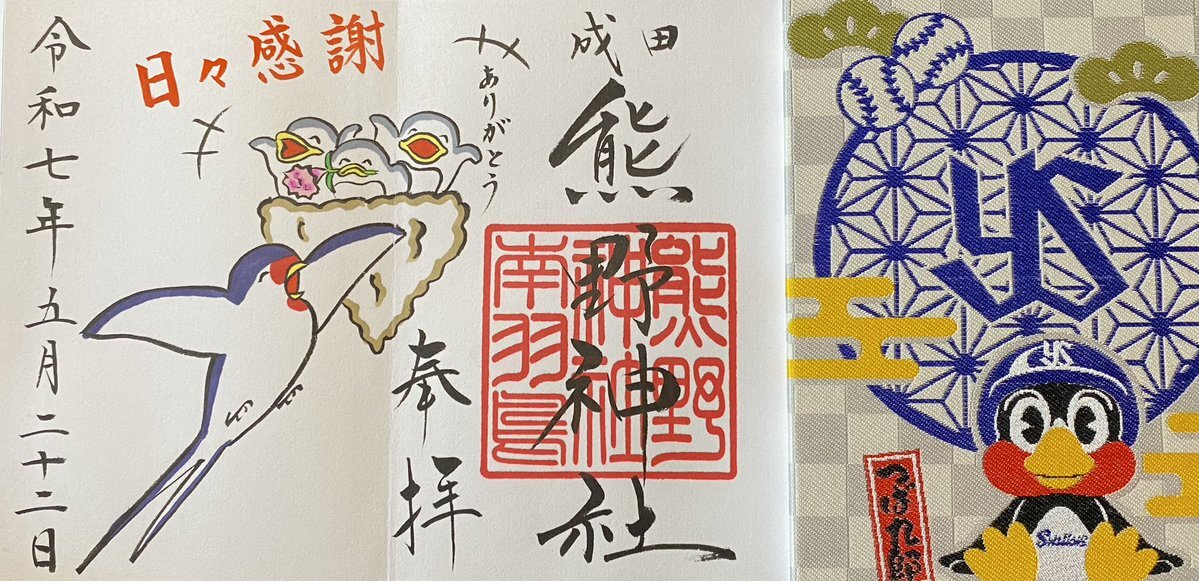 成田
熊野神社
熊野
神社
南羽鳥
ありがとう
奉拝
日々感謝
令和七年五月二十二日
YS
YS
つば九郎
Swallows